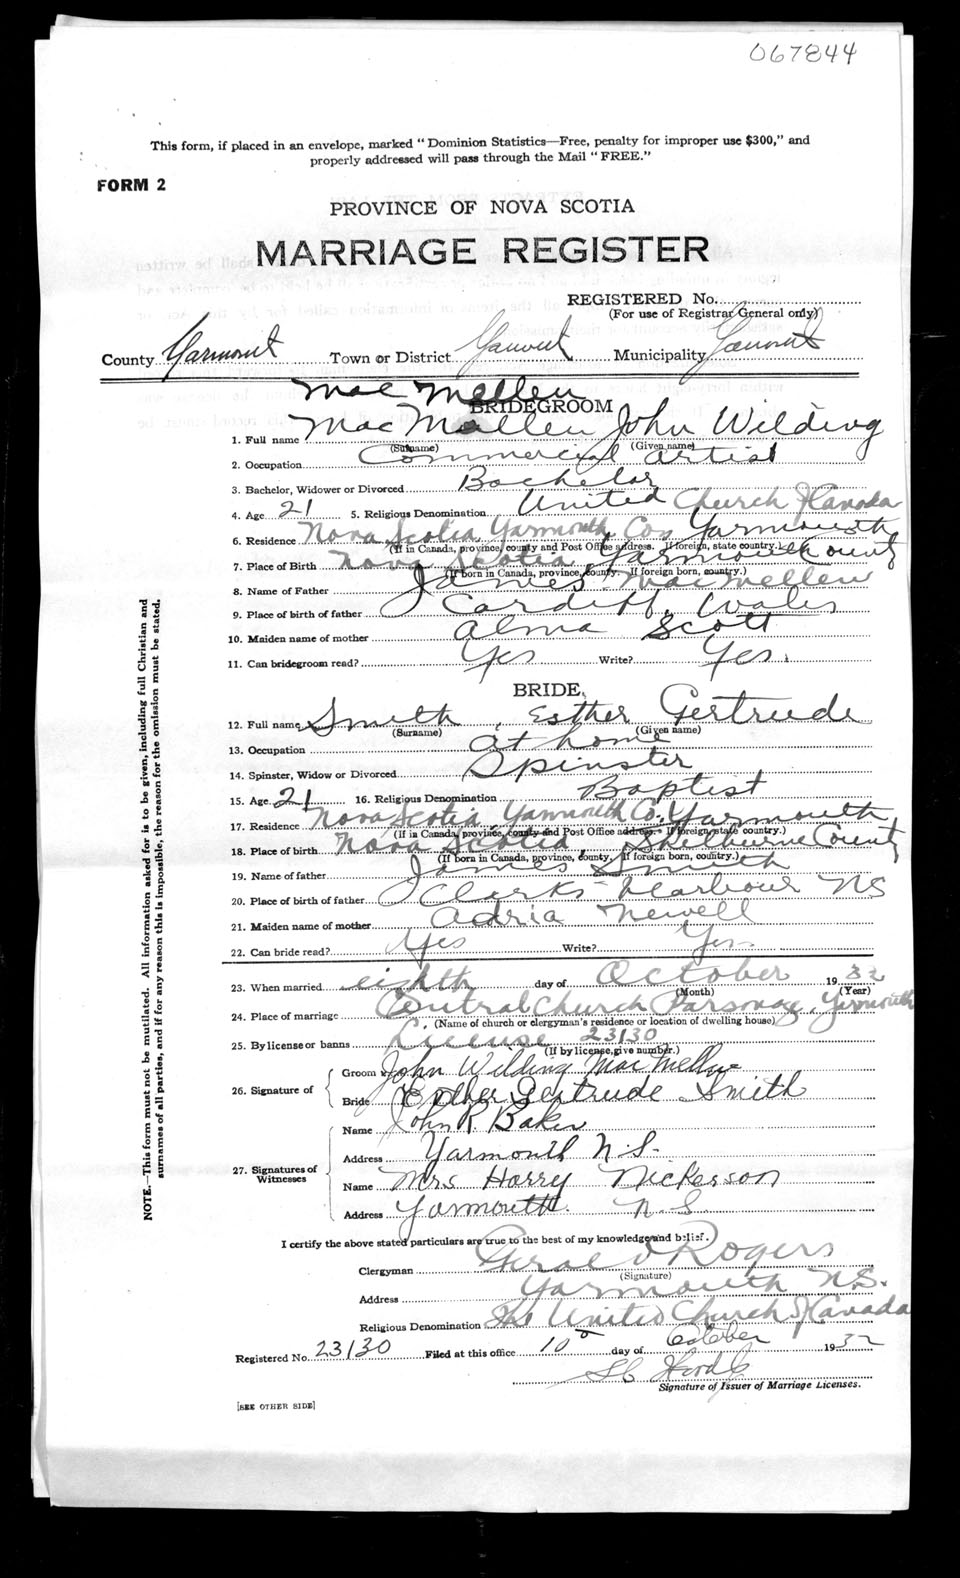 067844
This form, if placed in an envelope, marked "Dominion Statistics—Free, penalty for improper use $300," and
properly addressed will pass through the Mail "FREE."
FORM 2
PROVINCE OF NOVA SCOTIA
MARRIAGE REGISTER
REGISTERED No.
(For use of Registrar General only)
County Yarmouth Town or District Yarmouth Municipality Yarmouth
MacMellen
BRIDEGROOM
1. Full name MacMullen John Wilding
(Surname) (Given name)
2. Occupation Commercial artist
3. Bachelor, Widower or Divorced Bachelor
4. Age 21 5. Religious Denomination United Church of Canada
6. Residence Nova Scotia Yarmouth Co, Yarmouth
(If in Canada, province, county and Post Office address. If foreign, state country.)
7. Place of Birth Nova Scotia Yarmouth County
(If born in Canada, province, county. If foreign born, country.)
8. Name of Father James MacMellen
9. Place of birth of father Cardiff, Wales
10. Maiden name of mother Alma Scott
11. Can bridegroom read? Yes Write? Yes.
BRIDE
12. Full name Smith, Esther Gertrude
(Surname) (Given name)
13. Occupation at home
14. Spinster, Widow or Divorced Spinster
15. Age 21 16. Religious Denomination Baptist
17. Residence Nova Scotia Yarmouth Co. Yarmouth
(If in Canada, province, county and Post Office address. If foreign, state country.)
18. Place of birth Nova Scotia, Shelburne County
(If born in Canada, province, county. If foreign born, country.)
19. Name of father James Smith
20. Place of birth of father Clarks Harbour NS
21. Maiden name of mother Adria Newell
22. Can bride read? Yes Write? Yes
23. When married eighth day of October 1932
(Month) (Year)
24. Place of marriage Central Church Parsonage, Yarmouth
(Name of church or clergyman's residence or location of dwelling house)
25. By license or banns License 23130
(If by license, give number.)
26. Signature of Groom John Wilding MacMellen
Bride Esther Gertrude Smith
27. Signatures of Witnesses Name John R. Baker
Address Yarmouth N.S.
Name Mrs Harry Nickerson
Address Yarmouth. N.S
I certify the above stated particulars are true to the best of my knowledge and belief.
Clergyman Gerald Rogers
(Signature)
Address Yarmouth N.S.
Religious Denomination The United Church of Canada
Registered No. 23130 Filed at this office 10 day of October 1932
Signature of Issuer of Marriage Licenses.
[SEE OTHER SIDE]
NOTE.—This form must not be mutilated. All information asked for is to be given, including full Christian and
surnames of all parties, and if for any reason this is impossible, the reason for the omission must be stated.